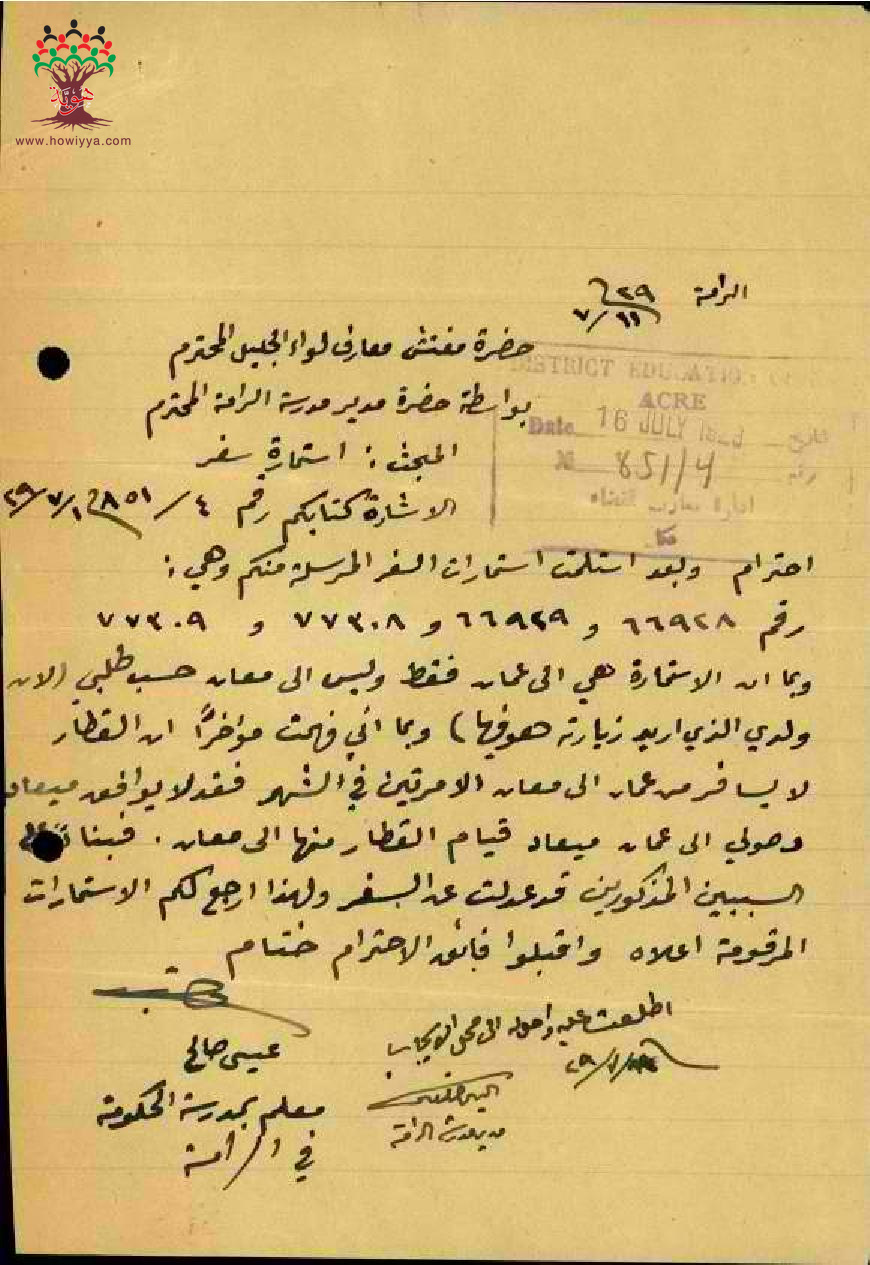 هوية
www.howiyya.com
الرامة ٢٩
٧/١١
حضرة مفتش معارف لواء الجليل المحترم
DISTRICT EDUCATION
ACRE
بواسطة حضرة مدير مدرسة الرامة المحترم
Date 16 JULY تاريخ
المبحث : استمارة سفر
№ 851/4 رقم
ادارة معارف قضاء
عكا
الاشارة كتابكم رقم ٤/٨٥١
احترام وبعد استلمت استمارات السفر المرسلة منكم وهي :
رقم ٦٦٩٢٨ و ٦٦٩٢٩ و ٧٧٣٠٨ و ٧٧٣٠٩
وبما ان الاستمارة هي الى عمان فقط وليس الى معان حسب طلبي (لان
ولدي الذي اريد زيارته هو فيها) وبما اني فهمت مؤخراً ان القطار
لا يسافر من عمان الى معان الا مرتين في الشهر فقد لا يوافق ميعاد
وصولي الى عمان ميعاد قيام القطار منها الى معان . فبناءً على
السببين المذكورين قد عدلت عن السفر ولهذا ارجع لكم الاستمارات
المرقومة اعلاه واقبلوا فائق الاحترام ختام
اطلعت عليه واحوله الى محل الايجاب
عيسى صالح
معلم بمدرسة الحكومة
مدير مدرسة الرامة
في الرامة